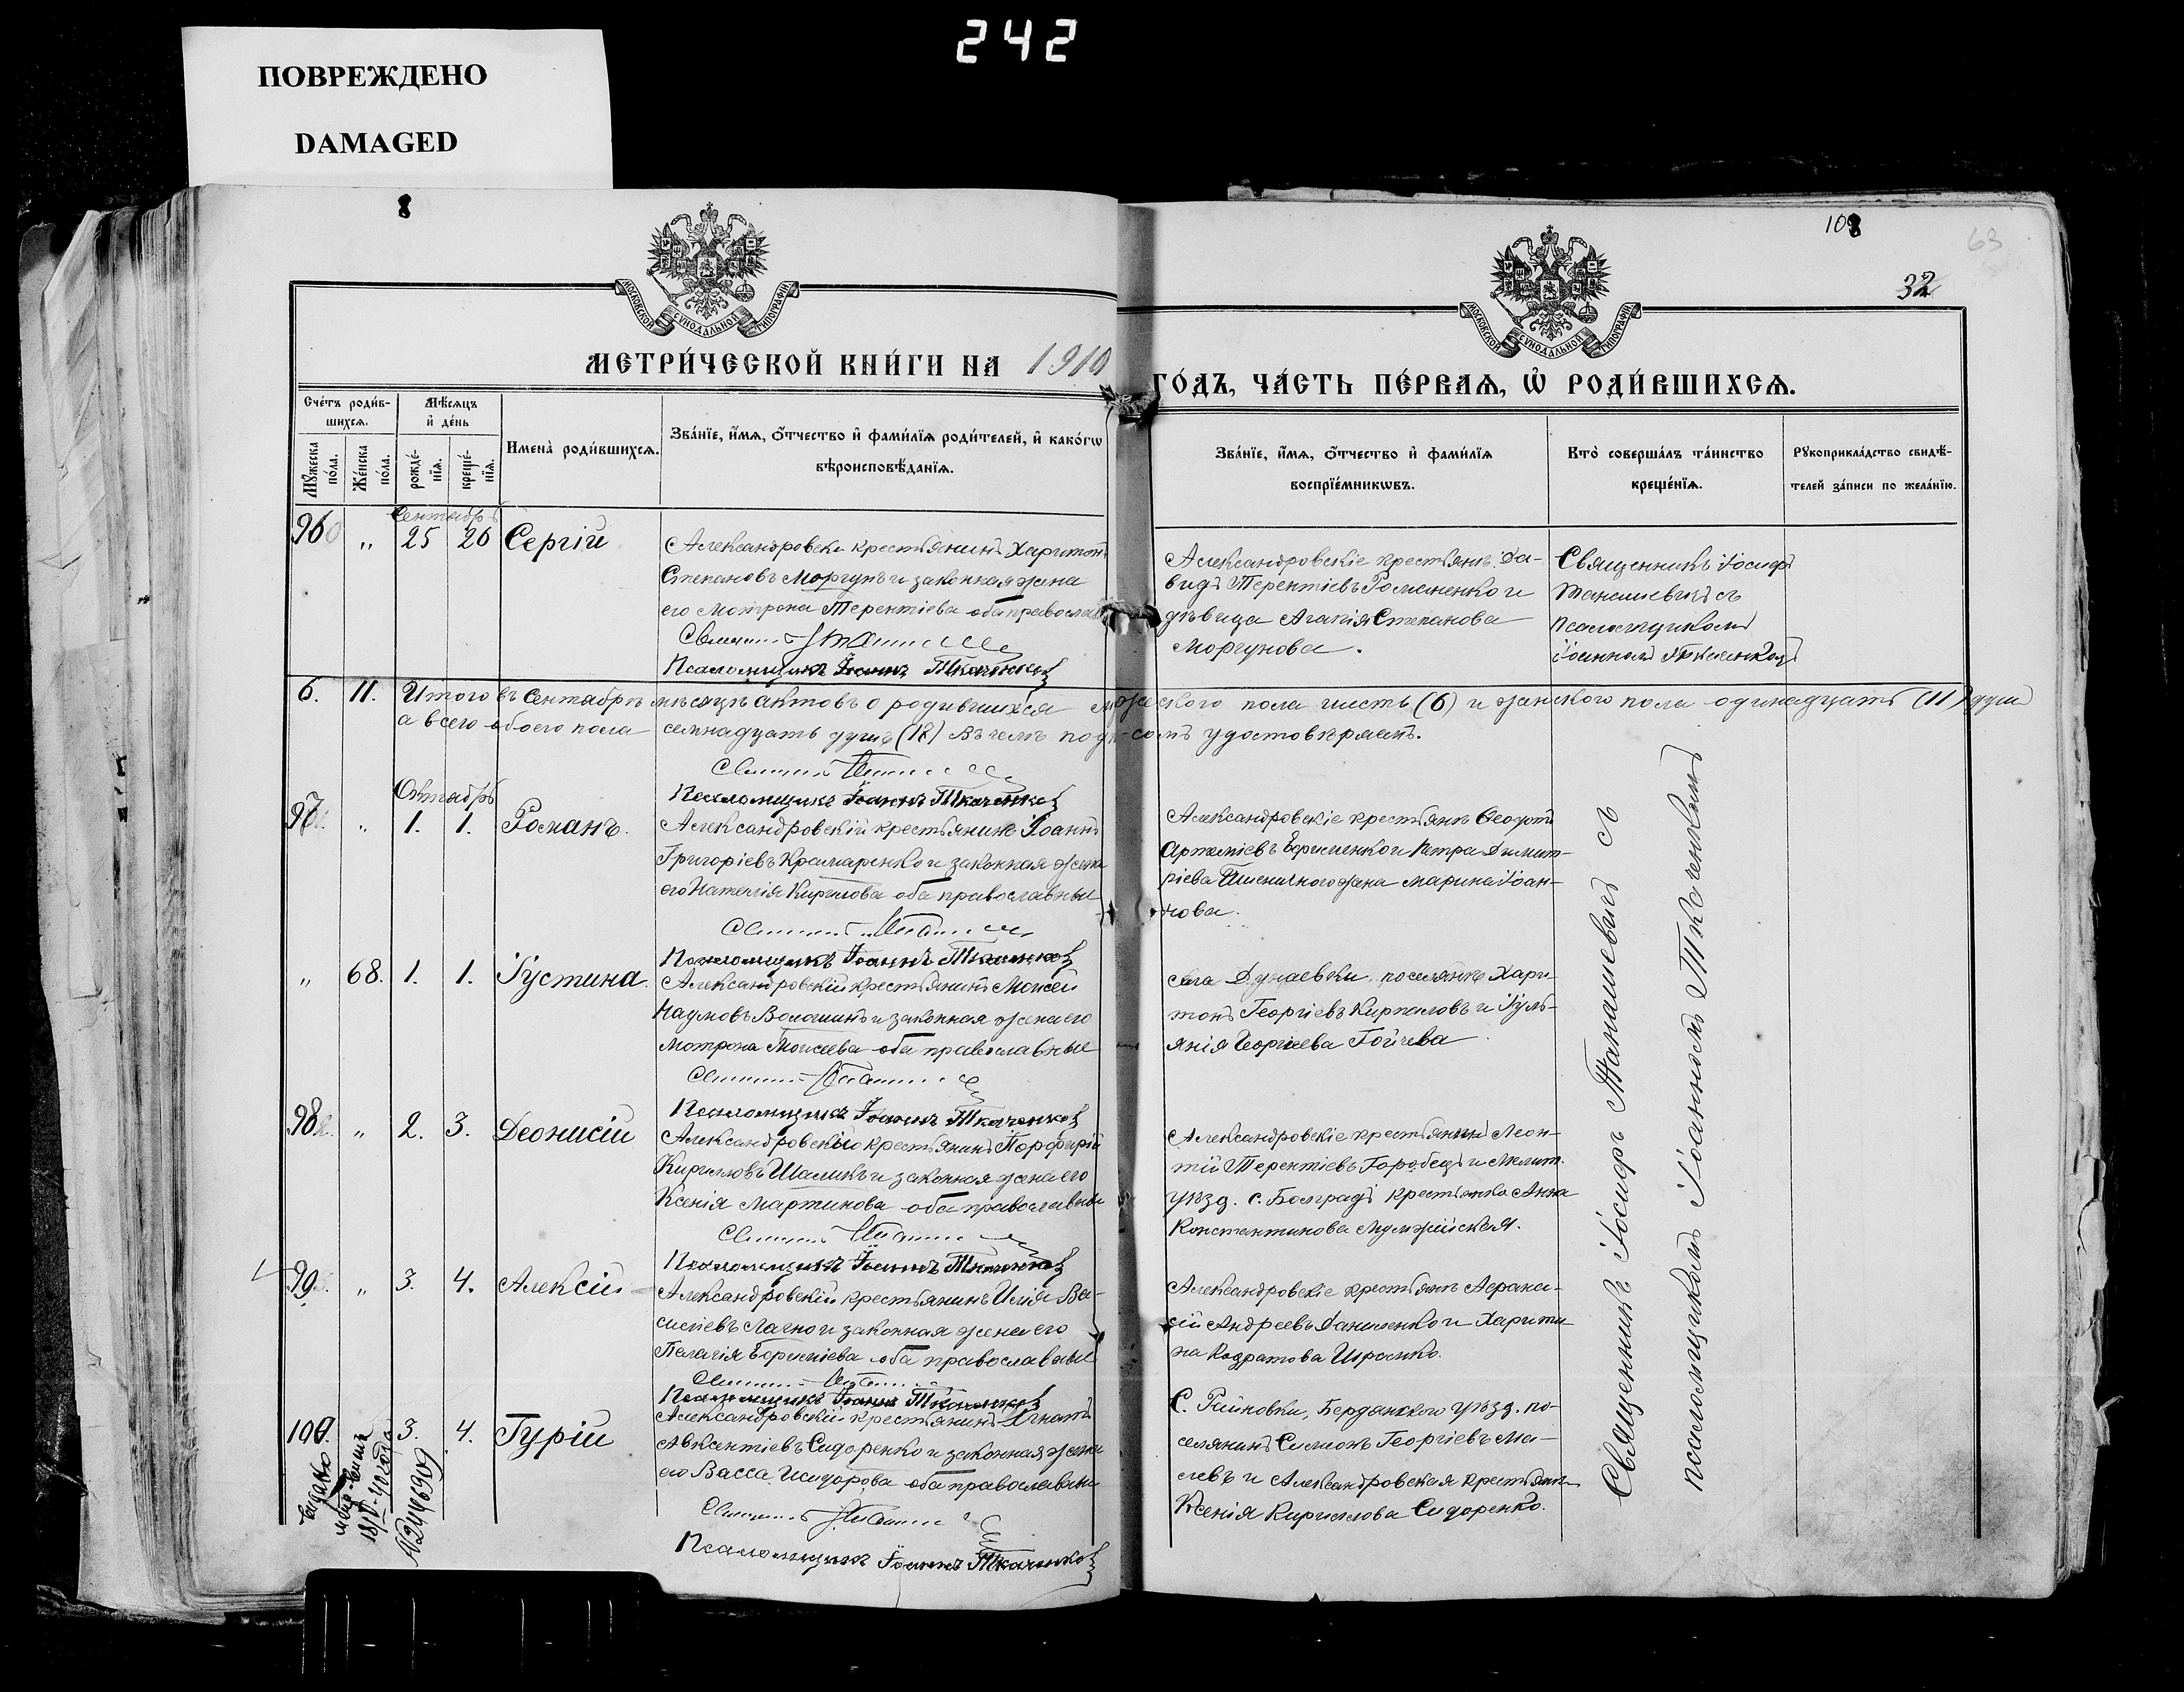 242
ПОВРЕЖДЕНО
DAMAGED
8
108
63
32
МОСКОВСКОЙ СѴНОДАЛЬНОЙ ТИПОГРАФІИ
МОСКОВСКОЙ СѴНОДАЛЬНОЙ ТИПОГРАФІИ
МЕТРИ́ЧЕСКОЙ КНИ́ГИ НА 1910
ГО́ДЪ, ЧА́СТЬ ПЕ́РВАѦ, Ѡ҆ РОДИ́ВШИХСѦ.
Сче́тъ роди́в-
шихсѧ.
Мꙋ́жеска
по́ла.
Же́нска
по́ла.
Мѣ́сѧцъ
и҆ де́нь
рожде́-
нїѧ.
креще́-
нїѧ.
Имена̀ роди́вшихсѧ.
Зва́нїе, и҆́мѧ, ѻ҆́тчество и҆ фами́лїѧ роди́телей, и҆ како́гѡ
вѣроисповѣ́данїѧ.
Зва́нїе, и҆́мѧ, ѻ҆́тчество и҆ фами́лїѧ
воспрїе́мникѡвъ.
Кто̀ соверша́лъ та́инство
креще́нїѧ.
Рꙋкоприкла́дство свидѣ́-
телей за́писи по жела́нїю.
Сентябрь
96 „ 25 26 Сергій
Александровскій крестьянинъ Харитонъ
Степановъ Моргунъ и законная жена
его Мотрона Терентіева оба православ
Псаломщикъ Іоаннъ Ткаченко
Александровскіе крестьяне: Да-
видъ Терентіевъ Романенко и
дѣвица Агапія Степанова
Моргунова.
Священникъ Іосифъ
Танашевичъ съ
псаломщикомъ
Іоанномъ Ткаченкомъ
6. 11. Итого въ Сентябрѣ мѣсяцѣ актовъ о родившихся мужескаго пола шесть (6) и женскаго пола одинадцать (11) душъ
а всего обоего пола семнадцать душъ (17) въ чемъ подписомъ удостовѣряемъ.
Псаломщикъ Іоаннъ Ткаченко
Октябрь
97. „ 1. 1. Романъ.
Александровскій крестьянинъ Іоаннъ
Григоріевъ Крамаренко и законная жена
его Наталія Кирилова оба православные
Псаломщикъ Іоаннъ Ткаченко
Александровскіе крестьяне Ѳеодотъ
Артеміевъ Ефименко и Петра Димит-
ріева Пшеничного жена Марина Іоан-
нова.
„ 68. 1. 1. Іустина.
Александровскій крестьянинъ Моисей
Наумовъ Волошинъ и законная жена его
Мотрона Моисеева оба православные
Псаломщикъ Іоаннъ Ткаченко
села Дунаевки поселяне Хари-
тонъ Георгіевъ Кирпаловъ и Іуль-
янія Георгіева Гойчева
98. „ 2. 3. Деонисій
Александровскій крестьянинъ Порфирій
Кириловъ Шалыкъ и законная жена его
Ксенія Мартинова оба православные
Псаломщикъ Іоаннъ Ткаченко
Александровскіе крестьянинъ Леон-
тій Терентіевъ Горобецъ и Мелит.
уѣзд. с. Болградъ крестьянка Анна
Константинова
99. „ 3. 4. Алексій
Александровскій крестьянинъ Илія Ва-
силіевъ Лагно и законная жена его
Пелагія Ефриміева оба православные
Псаломщикъ Іоаннъ Ткаченко
Александровскіе крестьяне Аѳрана-
сій Андреевъ Даниленко и Харити-
на Кодратова
100. 3. 4. Гурій
Александровскій крестьянинъ Игнатъ
Авксентіевъ Сидоренко и законная жена
его Васса Исидорова оба православные
Псаломщикъ Іоаннъ Ткаченко
С. Райновки, Бердянского уѣзд. по-
селянинъ Симонъ Георгіевъ Ма-
левъ и Александровская крестьянка
Ксенія Кирилова Сидоренко.
Священникъ Іосифъ Танашевичъ съ
псаломщикомъ Іоанномъ Ткаченкомъ